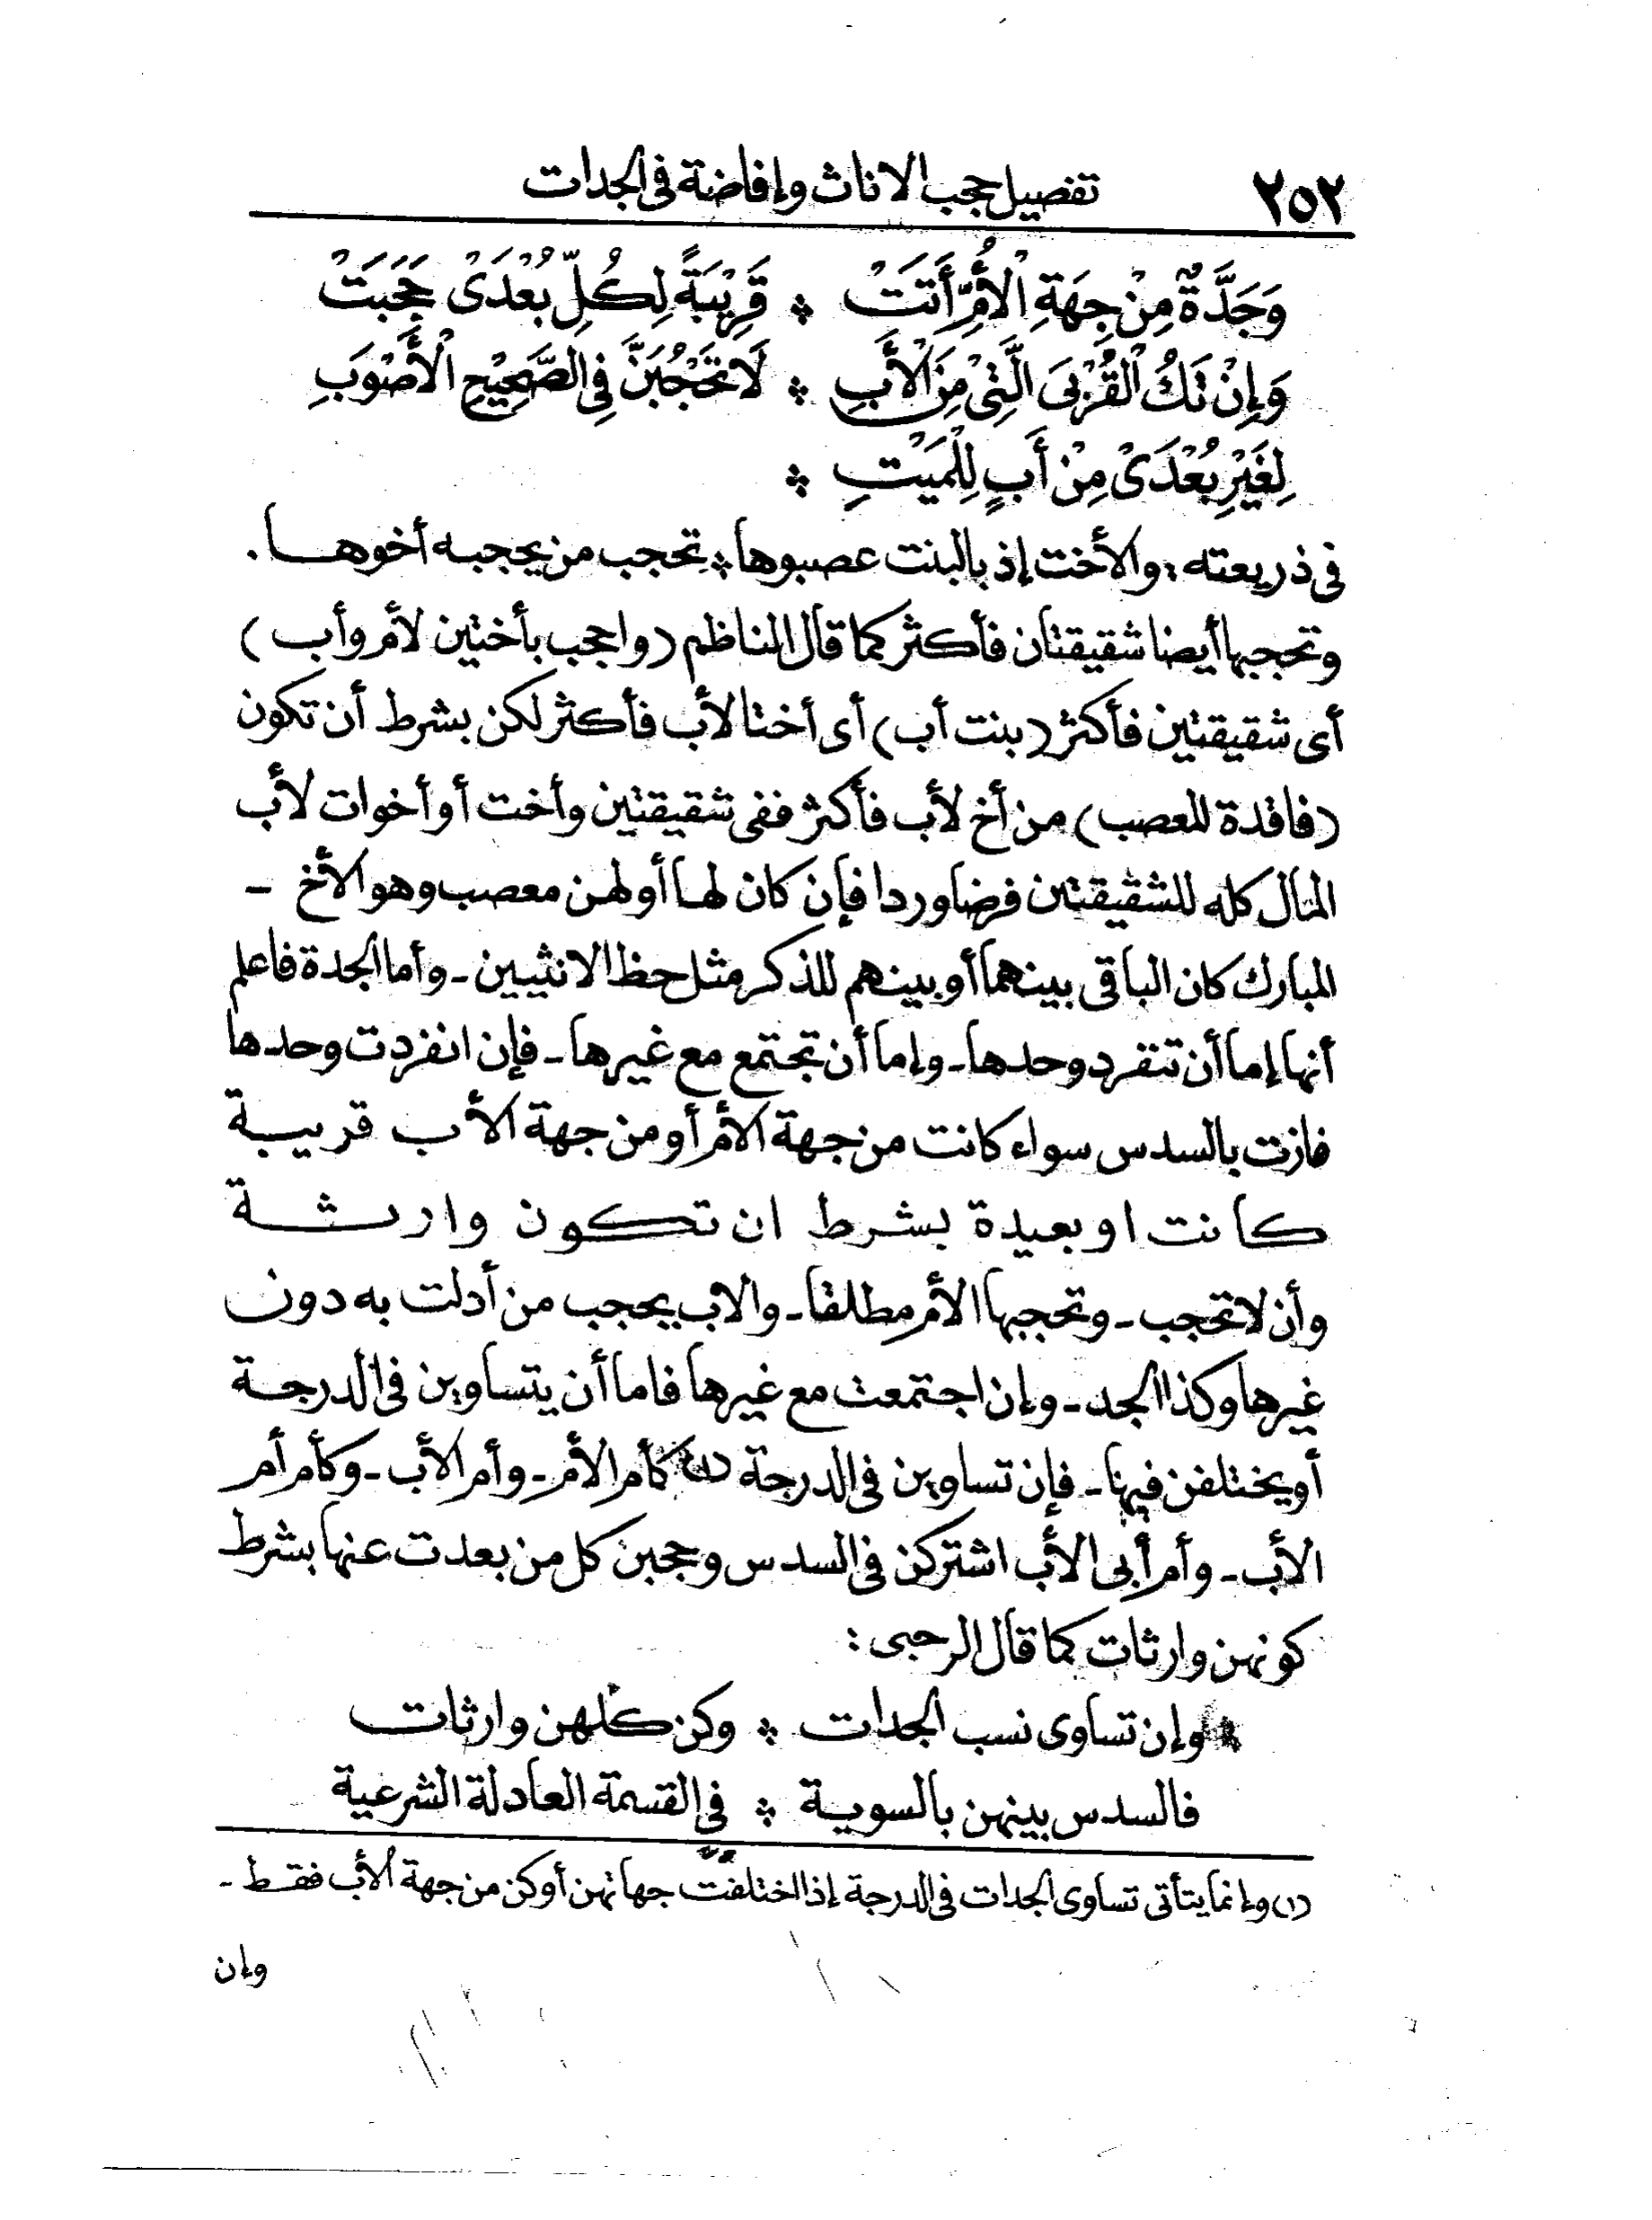 ٢٥٢ تفصيل حجب الاناث وإفاضة فى الجدات
وَجَدَّةٌ مِنْ جِهَةِ الْأُمِّ أَتَتْ * قَرِيْبَةً لِكُلِّ بُعْدَىْ حَجَبَتْ
وَإِنْ تَكُ الْقُرْبَى الَّتِىْ مِنَ الْأَبِ * لَا تَحْجُبَنَّ فِى الصَّحِيْحِ الْأَصْوَبِ
لِغَيْرِ بُعْدَىْ مِنْ أَبٍ لِلْمَيِّتِ *
فى ذريعته : والأخت إذ بالبنت عصبوها * تحجب من يحجبه أخوها .
وتحجبها أيضا شقيقتان فأكثر كما قال الناظم (واحجب بأختين لأم وأب)
أى شقيقتين فأكثر (بنت أب) أى أختا لأب فأكثر لكن بشرط أن تكون
(فاقدة للعصب) من أخ لأب فأكثر ففى شقيقتين وأخت أو أخوات لأب
المال كله للشقيقتين فرضا وردا فإن كان لها أو لهن معصب وهو الأخ -
المبارك كان الباقى بينهما أو بينهم للذكر مثل حظ الانثيين - وأما الجدة فاعلم
أنها إما أن تنفرد وحدها - وإما أن تجتمع مع غيرها - فإن انفردت وحدها
فازت بالسدس سواء كانت من جهة الأم أو من جهة الأب قريبة
كانت او بعيدة بشرط ان تكون وارثة
وأن لا تحجب - وتحجبها الأم مطلقا - والاب يحجب من أدلت به دون
غيرها وكذا الجد - وإن اجتمعت مع غيرها فاما أن يتساوين فى الدرجة
أو يختلفن فيها - فإن تساوين فى الدرجة (١) كأم الأم - وأم الأب - وكأم أم
الأب - وأم أبى الأب اشتركن فى السدس وحجبن كل من بعدت عنها بشرط
كونهن وارثات كما قال الرحبى :
* وإن تساوى نسب الجدات * وكن كلهن وارثات
فالسدس بينهن بالسوية * فى القسمة العادلة الشرعية
(١) وإنما يتأتى تساوى الجدات فى الدرجة إذا اختلفت جهاتهن أو كن من جهة الأب فقط -
وإن